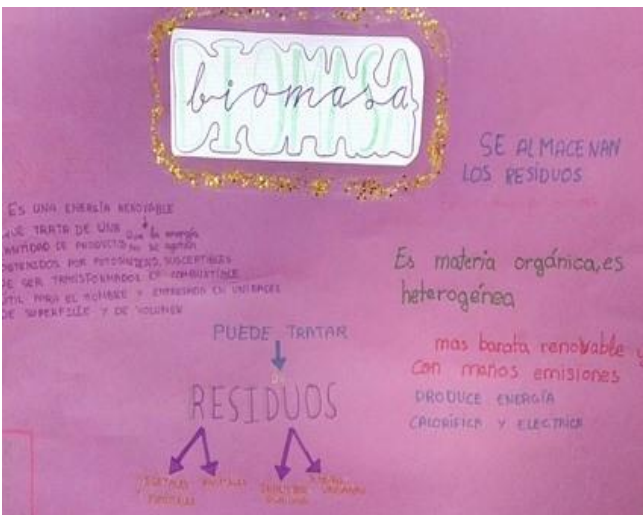 BIOMASA
biomasa
SE ALMACENAN
LOS RESIDUOS
ES UNA ENERGÍA RENOVABLE
QUE TRATA DE UNA que la energía
CANTIDAD DE PRODUCTOS no se agota
OBTENIDOS POR FOTOSÍNTESIS, SUSCEPTIBLES
DE SER TRANSFORMADOS EN COMBUSTIBLE
ÚTIL PARA EL HOMBRE Y EXPRESADO EN UNIDADES
DE SUPERFICIE Y DE VOLUMEN
Es materia orgánica, es
heterogénea
mas barata renovable y
con menos emisiones
PRODUCE ENERGÍA
CALORÍFICA Y ELECTRICA
PUEDE TRATAR
RESIDUOS
VEGETALES ANIMALES